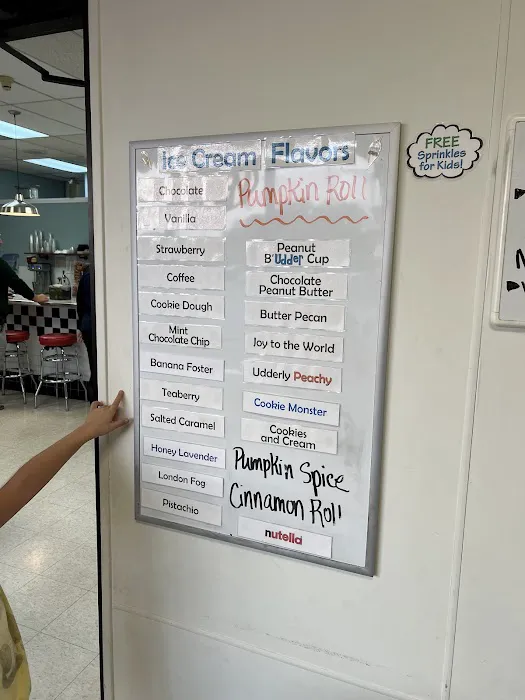 Ice Cream Flavors
Chocolate
Vanilla
Strawberry
Coffee
Cookie Dough
Mint
Chocolate Chip
Banana Foster
Teaberry
Salted Caramel
Honey Lavender
London Fog
Pistachio
Pumpkin Roll
Peanut
B'Udder Cup
Chocolate
Peanut Butter
Butter Pecan
Joy to the World
Udderly Peachy
Cookie Monster
Cookies
and Cream
Pumpkin Spice
Cinnamon Roll
nutella
FREE
Sprinkles
for Kids!